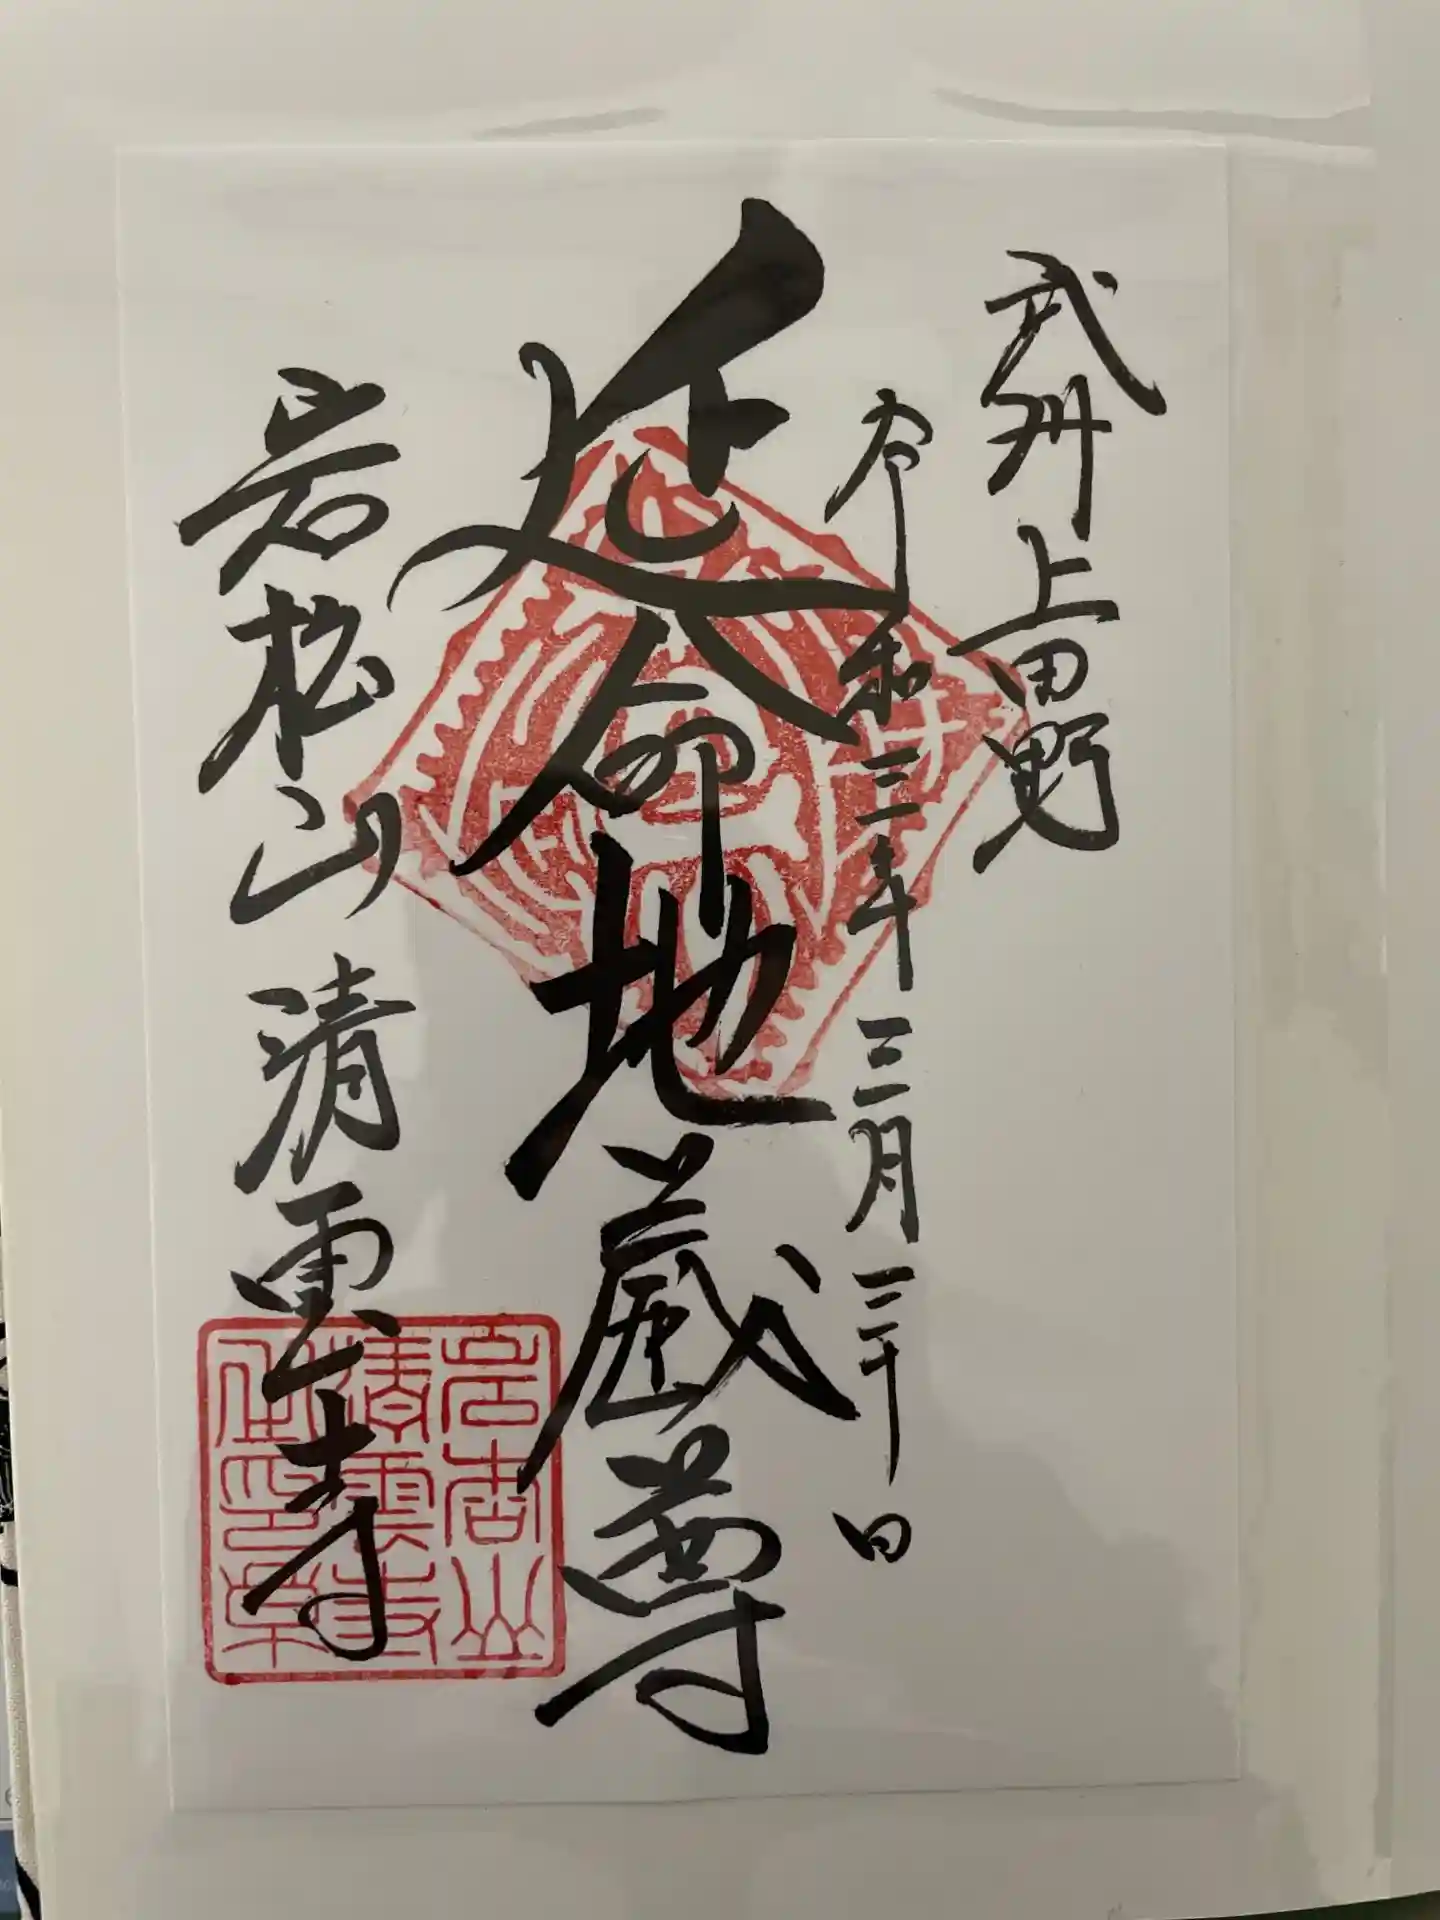 武州上田野
令和三年三月三十日
延命地蔵尊
岩松山 清雲寺
岩松山
清雲寺